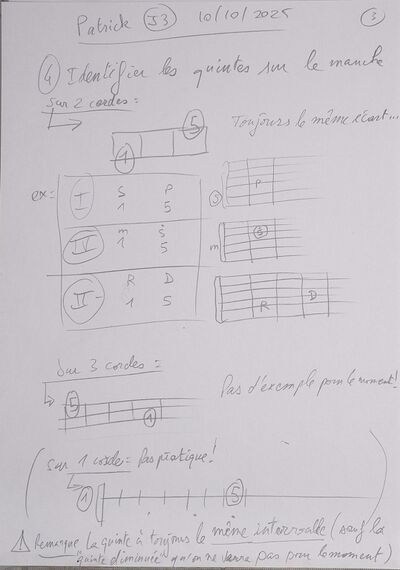 Patrick J3 10/10/2025 3
④ Identifier les quintes sur le manche
Sur 2 cordes =
Toujours le même écart...
1 5
ex =
I S P
1 5
S P
IV m ṡ
1 5
m ṡ
II- R D
1 5
R D
Sur 3 cordes =
5 1
Pas d'exemple pour le moment!
(sur 1 corde = Pas pratique!
1 5 )
⚠ Remarque La quinte à toujours le même intervalle (sauf la
"quinte diminuée" qu'on ne verra pas pour le moment)